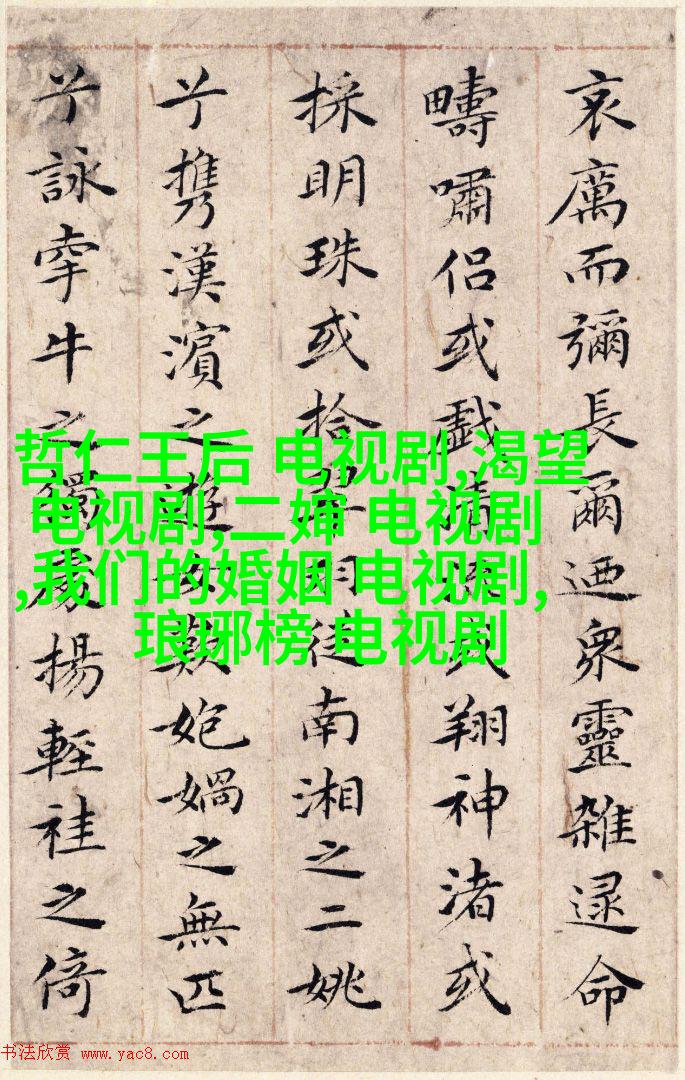 哀厲而彌長爾迺衆靈雜遝命
疇嘯侶或戲清流或翔神渚或
採明珠或拾翠羽從南湘之二姚
兮攜漢濱之遊女歎媧之無匹
兮詠牽牛之獨處揚輕袿之倚
哲仁王后 电视剧,渴望
电视剧,二婶 电视剧
,我们的婚姻 电视剧,
琅琊榜 电视剧
书法欣赏 www.yac8.com